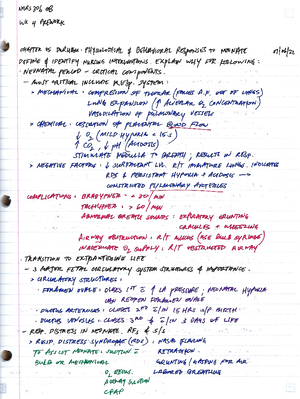 NURS 306 OB
WK 4 PREWORK
CHAPTER 15 DURHAM: PHYSIOLOGICAL & BEHAVIORAL RESPONSES TO NEONATE
DEFINE & IDENTIFY NURSING INTERVENTIONS. EXPLAIN WHY FOR FOLLOWING:
- NEONATAL PERIOD - CRITICAL COMPONENTS.
- MOST CRITICAL INCLUDE SYSTEM:
> MECHANICAL: COMPRESSION OF THORAX (FORCES OUT OF LUNGS)
LUNG EXPANSION (↑ ALVEOLAR O2 CONCENTRATION)
VASODILATION OF PULMONARY VESSELS
> CHEMICAL: CESSATION OF PLACENTAL BLOOD FLOW
↓ O2 (MILD HYPOXIA < 15 S)
↑ CO2, ↓ pH (ACIDOSIS)
STIMULATE MEDULLA TO BREATH; RESULTS IN RESP.
> NEGATIVE FACTORS: ↓ SURFACTANT R/T IMMATURE LUNGS, INDICATES
RDS & PERSISTENT HYPOXIA + ACIDOSIS →
CONSTRICTED PULMONARY ARTERIES
COMPLICATIONS: BRADYPNEA: < 30/MIN
TACHYPNEA: > 60/MIN
ABNORMAL BREATH SOUNDS: EXPIRATORY GRUNTING
CRACKLES + WHEEZING
AIRWAY OBSTRUCTION: R/T MUCUS (USE BULB SYRINGE)
INADEQUATE O2 SUPPLY: R/T OBSTRUCTED AIRWAY
- TRANSITION TO EXTRAUTERINE LIFE
- 3 MAJOR FETAL CIRCULATORY SYSTEM STRUCTURES & IMPORTANCE.
> CIRCULATORY STRUCTURES:
- FORAMEN OVALE: CLOSES 1ST LA PRESSURE; NEONATAL HYPOXIA
CAN REOPEN FORAMEN OVALE
- DUCTUS ARTERIOSUS: CLOSES 2ND W/IN 15 HRS OF BIRTH
- DUCTUS VENOSUS: CLOSES 3RD W/IN 3 DAYS OF LIFE
- RESP. DISTRESS IN NEONATE, RF'S & S/S
> RESP. DISTRESS SYNDROME (RDS): NASAL FLARING
TO ASSIST NEONATE: SUCTION RETRACTION
BULB OR MECHANICAL GRUNTING/GASPING FOR AIR
O2 LABORED BREATHING
AIRWAY SUCTION
CPAP